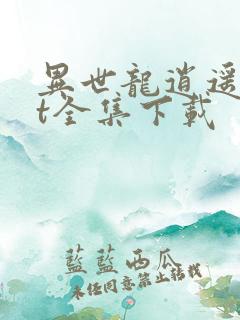 異世龍逍遥
t全集下載
藍藍西瓜
未經同意禁止轉載